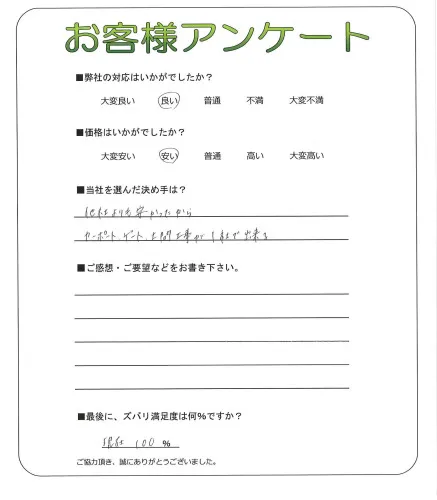 お客様アンケート
■弊社の対応はいかがでしたか？
大変良い 良い 普通 不満 大変不満
■価格はいかがでしたか？
大変安い 安い 普通 高い 大変高い
■当社を選んだ決め手は？
他社よりも安かったから
カーポート、ゲート、土間工事が1社で出来る
■ご感想・ご要望などをお書き下さい。
■最後に、ズバリ満足度は何%ですか？
現在 100 %
ご協力頂き、誠にありがとうございました。